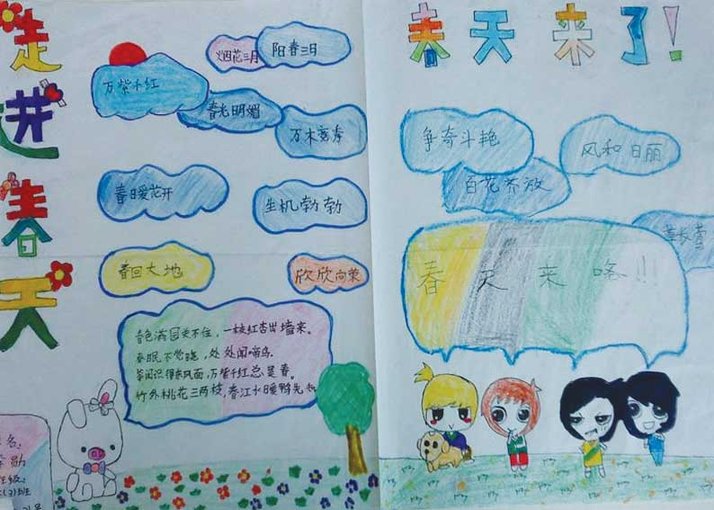 走进春天
烟花三月
阳春三日
万紫千红
春光明媚
万木争春
春日爱花开
生机勃勃
春回大地
欣欣向荣
春色满园关不住，一枝红杏出墙来。
春眠不觉晓，处处闻啼鸟。
等闲识得东风面，万紫千红总是春。
竹外桃花三两枝，春江水暖鸭先知
春天来了！
争奇斗艳
风和日丽
百花齐放
春天来咯!!!